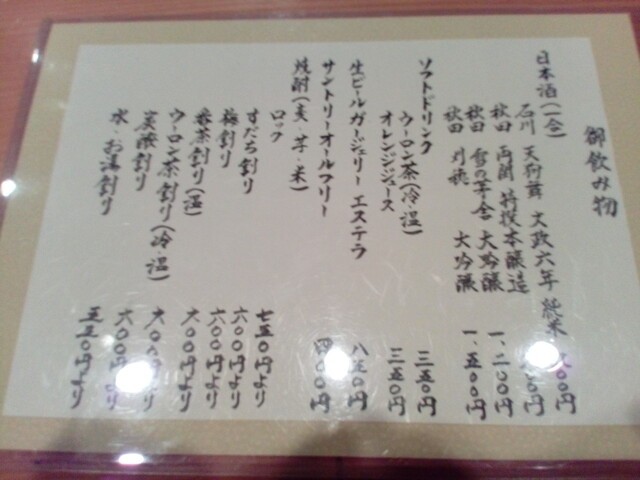 御飲み物
日本酒(一合)
石川 天狗舞 文政六年 純米 九〇〇円
秋田 両関 特撰本醸造 〇〇円
秋田 雪の茅舎 大吟醸 一、二〇〇円
秋田 刈穂 大吟醸 一、五〇〇円
ソフトドリンク
ウーロン茶(冷・温) 三五〇円
オレンジジュース 三五〇円
生ビール ガージェリー エステラ 八五〇円
サントリーオールフリー 四〇〇円
焼酎(麦・芋・米)
ロック 七五〇円より
すだち割り 六〇〇円より
梅割り 六〇〇円より
番茶割り(温) 六〇〇円より
ウーロン茶割り(冷・温) 六〇〇円より
炭酸割り 六〇〇円より
水・お湯割り 五五〇円より